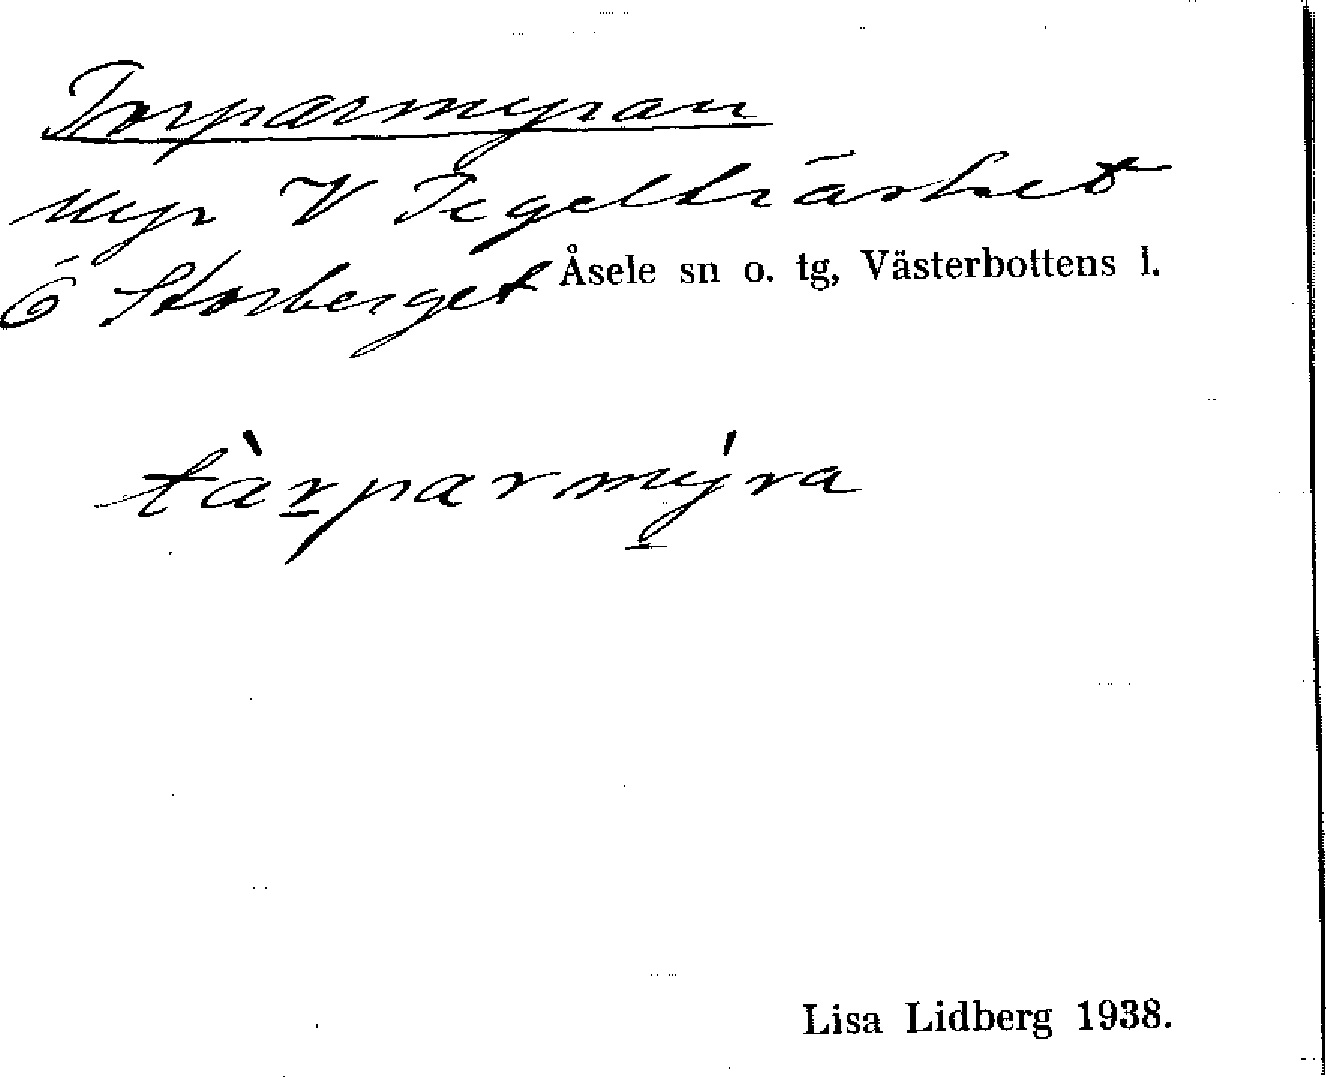 Torparmyran
Myr V Tegelträsket
Ö Storberget
Åsele sn o. tg, Västerbottens l.
tàrparmýra
Lisa Lidberg 1938.